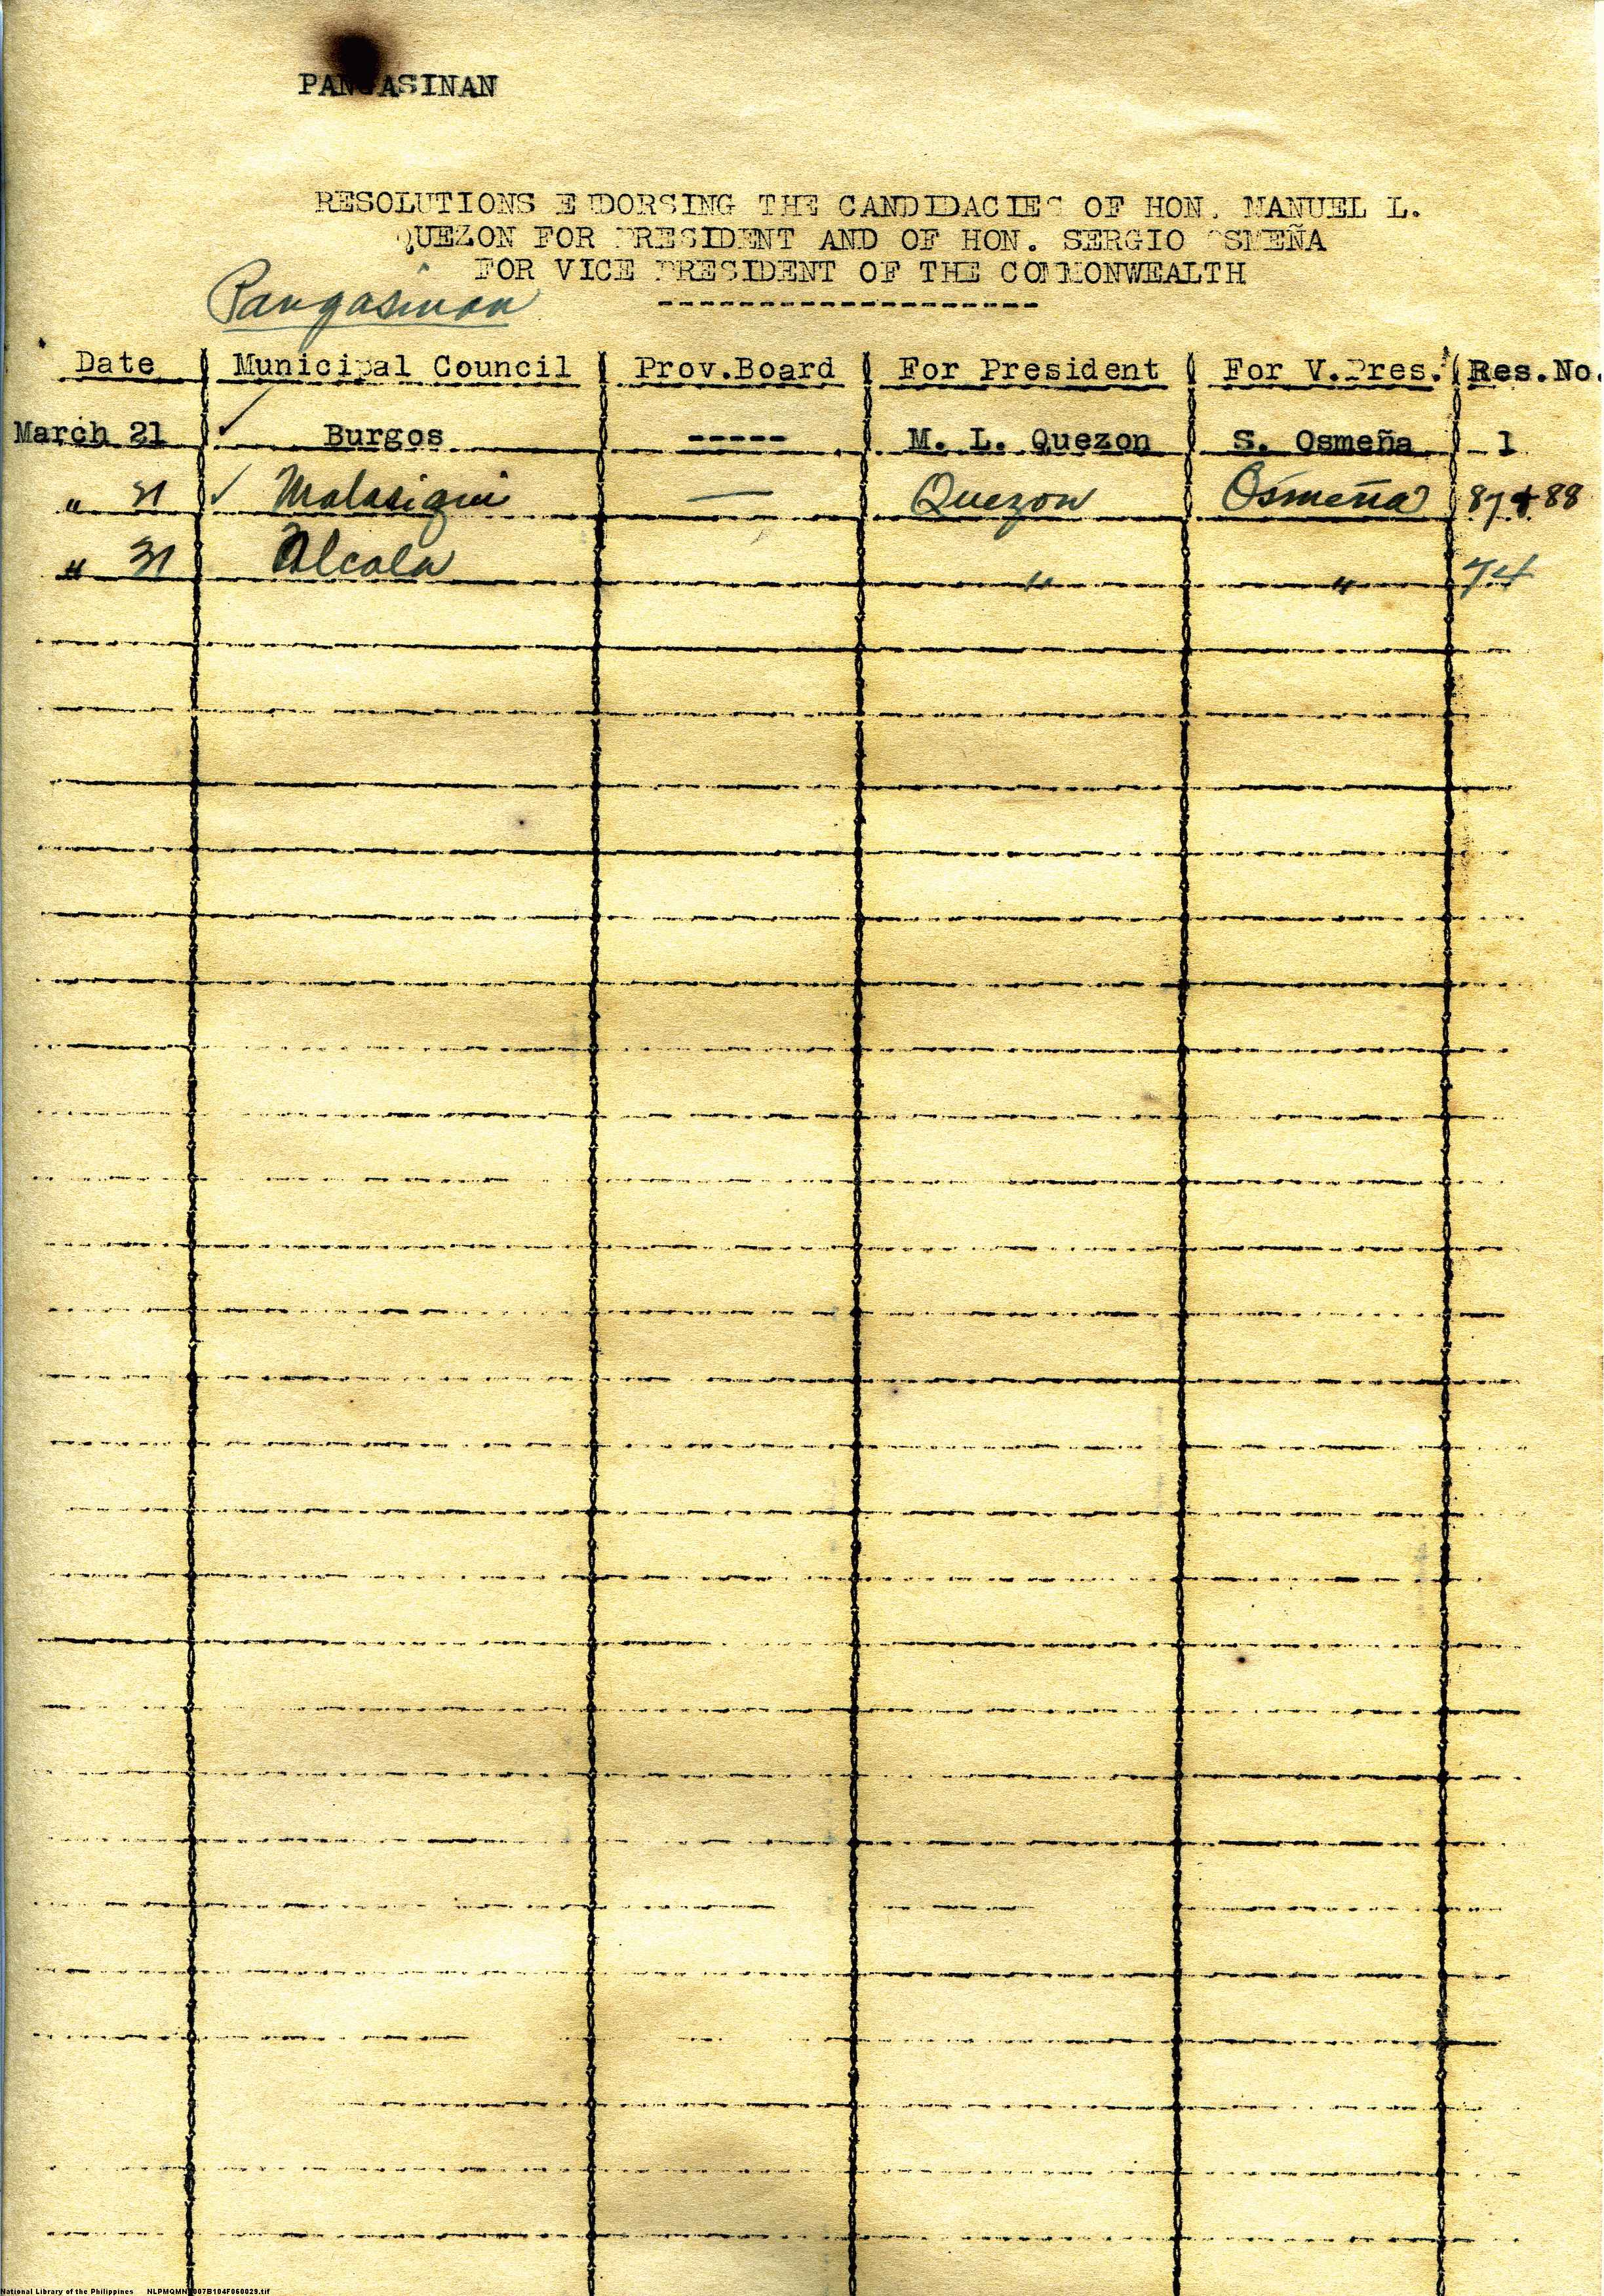 PANGASINAN
RESOLUTIONS ENDORSING THE CANDIDACIES OF HON. MANUEL L.
QUEZON FOR PRESIDENT AND OF HON. SERGIO OSMEÑA
FOR VICE PRESIDENT OF THE COMMONWEALTH
Pangasinan
Date Municipal Council Prov.Board For President For V.Pres. Res.No.
March 21 Burgos ----- M. L. Quezon S. Osmeña 1
" 31 Malasiqui — Quezon Osmeña 87 & 88
" 31 Alcala " " 74
National Library of the Philippines